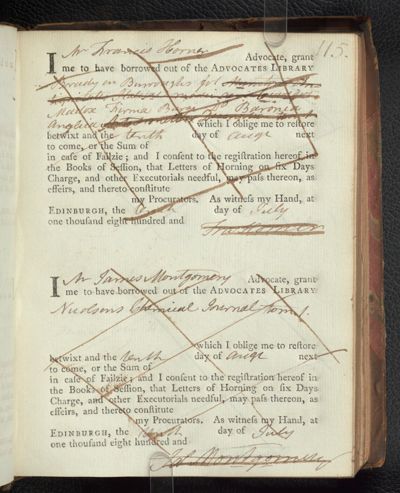 115.
I Mr Francis Horner Advocate, grant
me to have borrowed out of the ADVOCATES LIBRARY
Brady on Burroughs fol.
Madox Firma Burgi Do Baronia
Anglica which I oblige me to restore
betwixt and the tenth day of Augt next
to come, or the Sum of
in caſe of Failzie; and I conſent to the regiſtration hereof in
the Books of Seſſion, that Letters of Horning on ſix Days
Charge, and other Executorials needful, may paſs thereon, as
effeirs, and thereto conſtitute
my Procurators. As witneſs my Hand, at
EDINBURGH, the tenth day of July
one thouſand eight hundred and
Fra. Horner
I Mr James Montgomery Advocate, grant
me to have borrowed out of the ADVOCATES LIBRARY
Nicolsons Chemical Journal tom 1.
which I oblige me to reſtore
betwixt and the tenth day of Augt next
to come, or the Sum of
in caſe of Failzie; and I conſent to the regiſtration hereof in
the Books of Seſſion, that Letters of Horning on ſix Days
Charge, and other Executorials needful, may paſs thereon, as
effeirs, and thereto conſtitute
my Procurators. As witneſs my Hand, at
EDINBURGH, the tenth day of July
one thouſand eight hundred and
Jas Montgomery